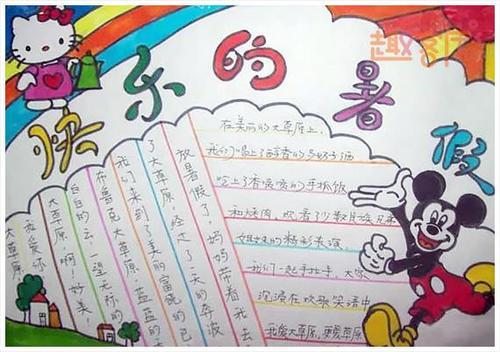 快乐的暑假
放暑假了,妈妈带着我去
了大草原,经过了一天的奔波
我们来到了美丽富饶的巴
布鲁克大草原。蓝蓝的
白白的云,一望无际的
大草原,啊!好美!
我爱你
大草原
在美丽的大草原上,
我们喝上了醇香的马奶子酒
吃上了香喷喷的手抓饭
和烤肉,欣看了少数民族兄
姐妹的精彩表演,
我们一起手拉手,大家
沉浸在欢歌笑语中
我爱大草原,更爱草原